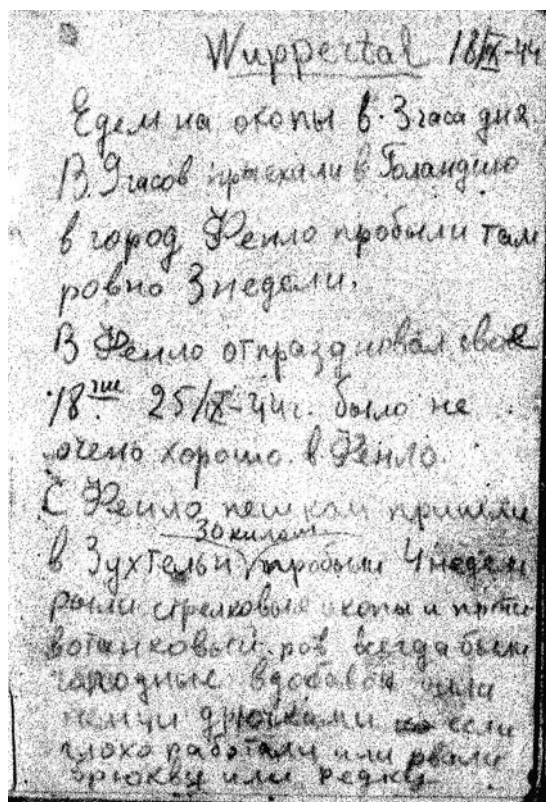 Wuppertal 18/IX-44
Едем на окопы в 3 часа дня.
В 9 часов приехали в Голандию
в город Фенло пробыли там
ровно 3 недели.
В Фенло отпраздновал свое
18тие 25/IX-44г. было не
очень хорошо в Фенло.
С Фенло пешком пришли
30 килом
в Зухтельн пробыли 4 недели
рыли стрелковые окопы и проти
вотанковый ров всегда были
голодные вдобавок
немци дрючками если
плохо работали или рвали
брюкву или редку